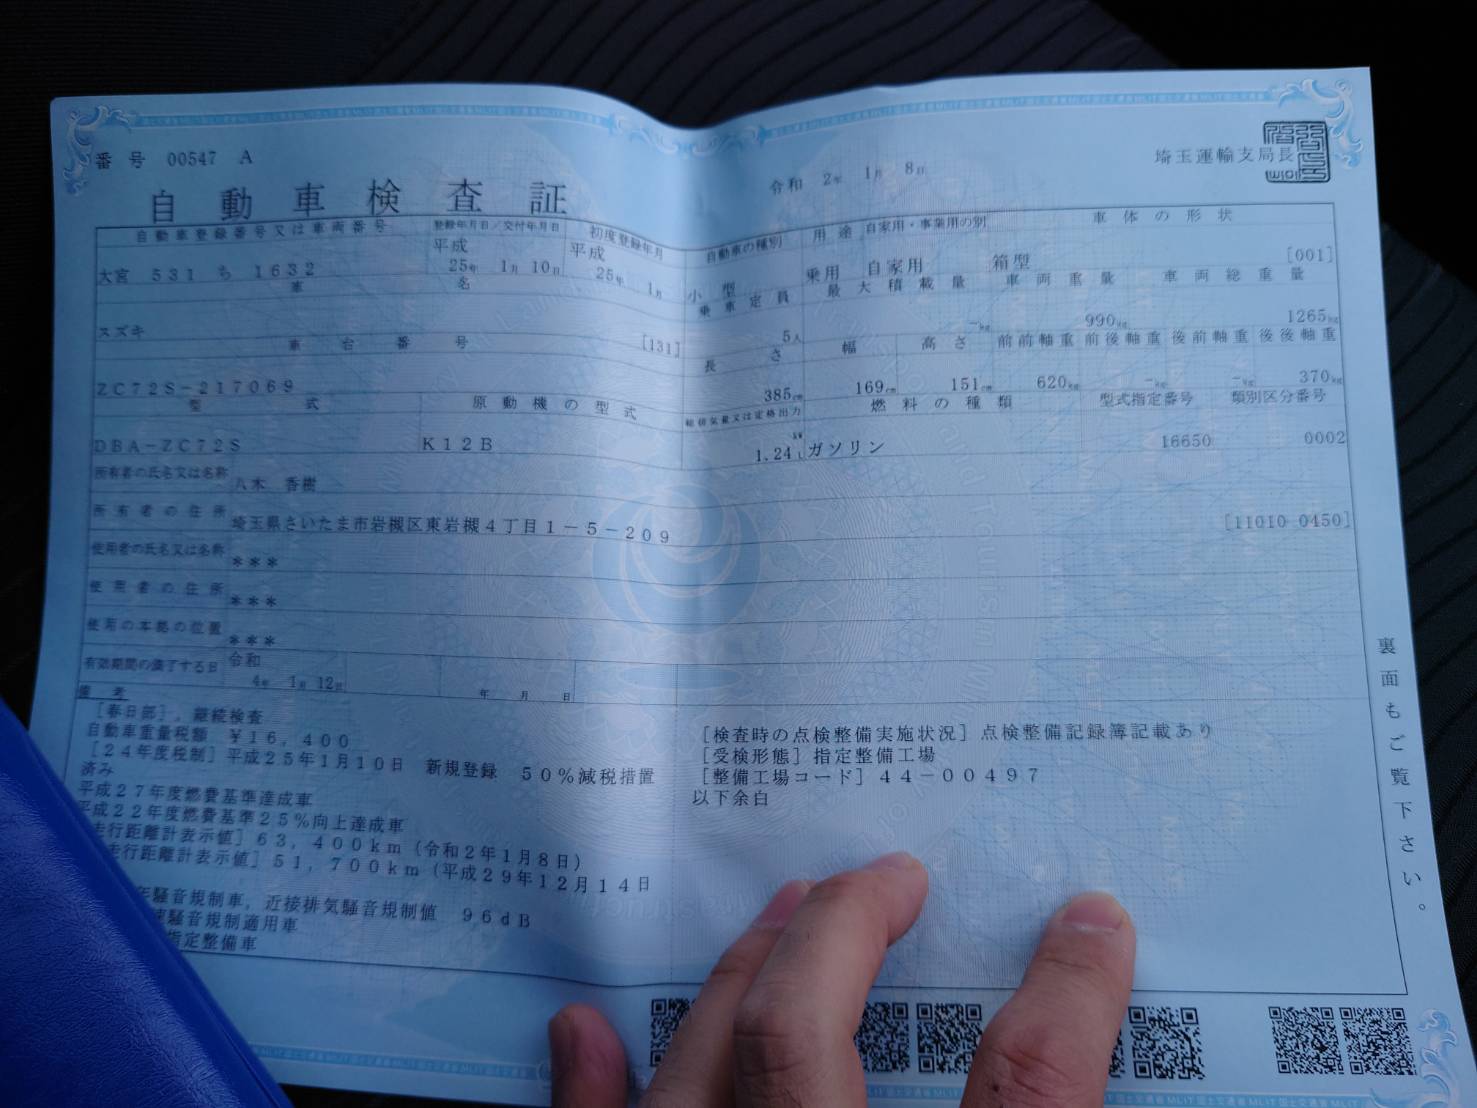 番号 00547 A
埼玉運輸支局長
令和 2年 1月 8日
自動車検査証
自動車登録番号又は車両番号 登録年月日/交付年月日 初度登録年月 自動車の種別 用途 自家用・事業用の別 車体の形状
大宮 531 ち 1632 平成 25年 1月 10日 平成 25年 1月 小型 乗用 自家用 箱型 [001]
車名 乗車定員 最大積載量 車両重量 車両総重量
スズキ [131] 5人 －kg 990kg 1265kg
車台番号 長さ 幅 高さ 前前軸重 前後軸重 後前軸重 後後軸重
ZC72S-217069 385cm 169cm 151cm 620kg －kg －kg 370kg
型式 原動機の型式 総排気量又は定格出力 燃料の種類 型式指定番号 類別区分番号
DBA-ZC72S K12B 1.24 kW L ガソリン 16650 0002
所有者の氏名又は名称 八木 香樹
所有者の住所 埼玉県さいたま市岩槻区東岩槻4丁目1-5-209 [11010 0450]
使用者の氏名又は名称 ***
使用者の住所 ***
使用の本拠の位置 ***
有効期間の満了する日 令和 4年 1月 12日 年 月 日
備考
[春日部],継続検査
自動車重量税額 ¥16,400
[24年度税制]平成25年1月10日 新規登録 50%減税措置
済み
平成27年度燃費基準達成車
平成22年度燃費基準25%向上達成車
走行距離計表示値]63,400km(令和2年1月8日)
走行距離計表示値]51,700km(平成29年12月14日
年騒音規制車,近接排気騒音規制値 96dB
騒音規制適用車
指定整備車
[検査時の点検整備実施状況]点検整備記録簿記載あり
[受検形態]指定整備工場
[整備工場コード]44-00497
以下余白
裏面もご覧下さい。